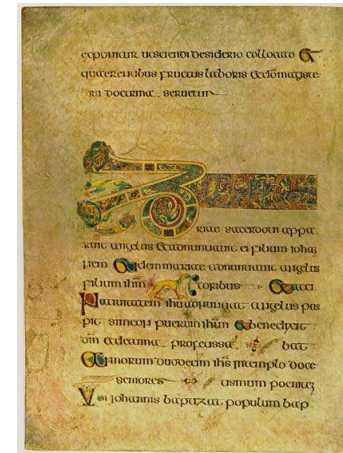 exponitur ut sciendi desiderio collocato et
quaerentibus fructus laboris et magiste
rii doctrina servetur
riae sacerdoti appa
ruit angelus et adnuntiavit ei filium iohan
nem mariae adnuntiavit angelus
filium ihm toribus et acci
ihu adnuntiat angelus pas
pit simeon puerum ihm et benedixit
dm et de anna profetissa bat
Annorum duodecim ihs in templo doce
seniores tismum
Ubi iohannis baptizat populum bap